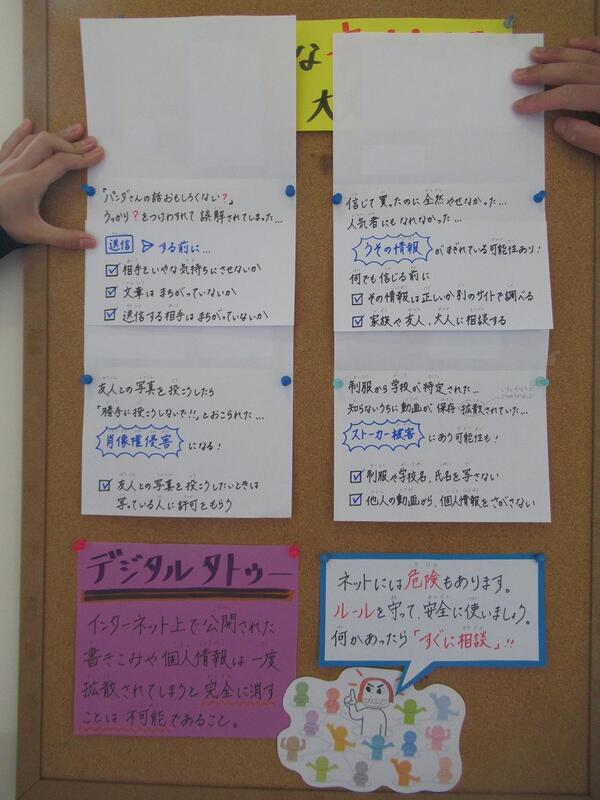 な
大
「パンダさんの話おもしろくない?」
うっかり?をつけわすれて誤解されてしまった…
送信 する前に…
相手をいやな気持ちにさせないか
文章はまちがっていないか
送信する相手はまちがっていないか
友人との写真を投こうしたら
「勝手に投こうしないで!!」とおこられた…
肖像権侵害 になる!
友人との写真を投こうしたいときは
写っている人に許可をもらう
信じて買ったのに全然やせなかった…
人気者にもなれなかった…
うその情報 がまぎれている可能性あり!
何でも信じる前に
その情報は正しいか別のサイトで調べる
家族や友人、大人に相談する
制服から学校が特定された…
知らないうちに動画が保存・拡散されていた…
ストーカー被害 にあう可能性も!
制服や学校名、氏名を写さない
他人の動画から、個人情報をさがさない
デジタルタトゥー
インターネット上で公開された
書きこみや個人情報は一度
拡散されてしまうと完全に消す
ことは不可能であること。
ネットには危険もあります。
ルールを守って、安全に使いましょう。
何かあったら「すぐに相談」!!